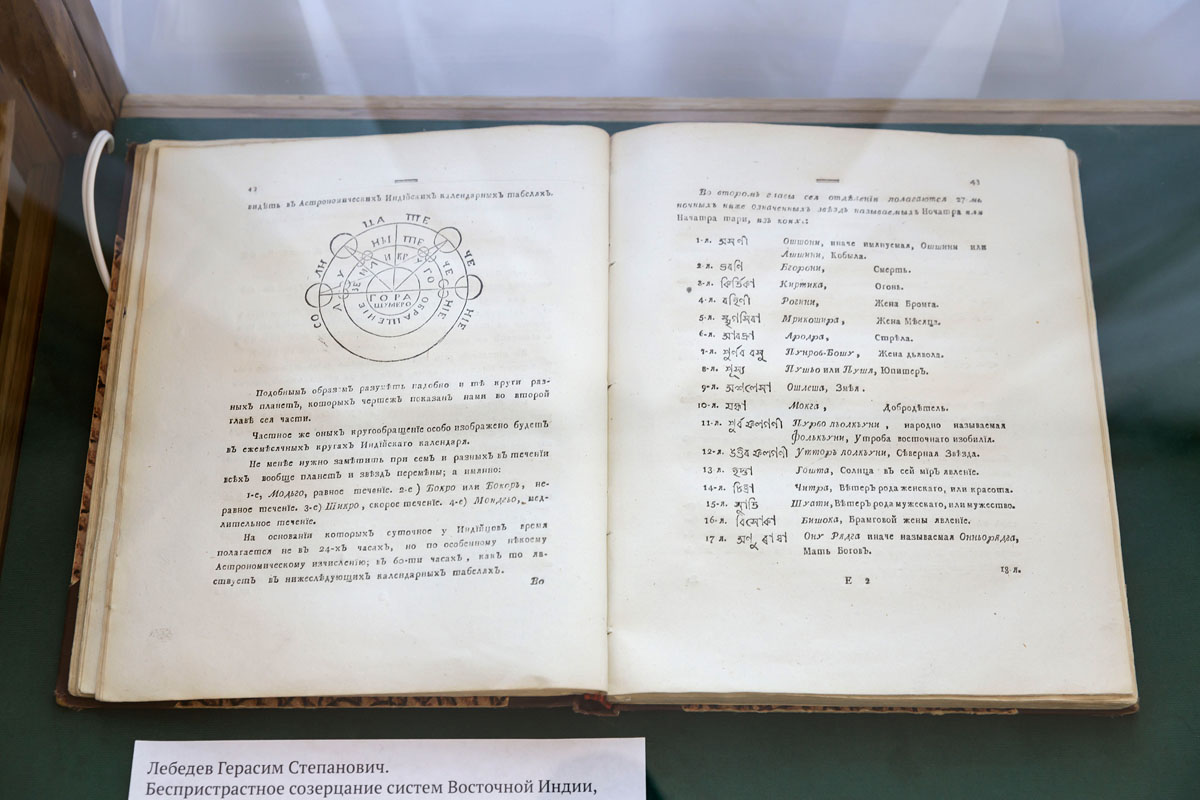 42
видѣть въ Астрономическихъ Индѣйскихъ календарныхъ табеляхъ.
ГОРА
ЩУМЕРО
ОБРАЩЕНІЕ
Подобнымъ образомъ разумѣть надобно и тѣ круги раз-
ныхъ планетъ, которыхъ чертежъ показан нами во второй
главѣ сея части.
Частное же оныхъ кругообращеніе особо изображено будетъ
въ ежемѣсячныхъ кругахъ Индѣйскаго календаря.
Не менѣе нужно замѣтить при семъ и разныхъ въ теченіи
всѣхъ вообще планетъ и звѣздъ перемѣны; а имянно:
1-е, Модьго, равное теченіе. 2-е) Бокро или Бокоръ, не-
равное теченіе. 3-е) Шикро, скорое теченіе. 4-е) Мондьго, мед-
лительное теченіе.
На основаніи которыхъ суточное у Индѣйцовъ время
полагается не въ 24-хъ часахъ, но по особенному нѣкоему
Астрономическому изчисленію; въ 60-ти часахъ, какъ то яв-
ствуетъ въ нижеслѣдующихъ календарныхъ табеляхъ.
Во
43
Во второмъ
сея отдѣленіи полагаются 27-мь
ночныхъ ниже означенныхъ звѣздъ называемыхъ Ночатра или
Начатра тари, изъ коих:
1-я. অশ্বনী Ошшони, иначе выпусная, Ошшини или
Ашшини, Кобыла.
2-я. ভরণি Бгорони, Смерть.
3-я. কির্ত্তিকা Киртика, Огонь.
4-я. রহিণী Рогини, Жена Бронга.
5-я. মৃগসিরা Мрикошира, Жена Мѣсяца.
6-я. আরদ্রা Ародра, Стрѣла.
7-я. পুর্নব বসু Пунров-Бошу, Жена дьявола.
8-я. পুস্য Пушьо или Пушя, Юпитеръ.
9-я. অশ্লেসা Ошлеша, Змѣя.
10-я. মঘা Мокга, Добродѣтель.
11-я. পুর্ব ফালগণী Пурво пьолкъуни, народно называемая
Фолькъуни, Утроба восточнаго изобилія.
12-я. উত্তর ফালগণী Утторъ полкъуни, Сѣверная Звѣзда.
13 л. হস্তা Гошта, Солнца въ сей мїръ явленіе.
14-я. চিত্রা Читра, Вѣтеръ рода женскаго, или красота.
15-я. স্বাতি Шуати, Вѣтеръ рода мужескаго, или мужество.
16-я. বিসাকা Бишока, Брамговой жены явленіе.
17 я. অনু রাধা Ону Рядга иначе называемая Онньорядга,
Мать Боговъ.
18-я.
Е 2
Лебедев Герасим Степанович.
Беспристрастное созерцание систем Восточной Индии,